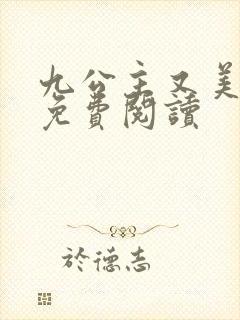 九公主又美
免費閱讀
於德志